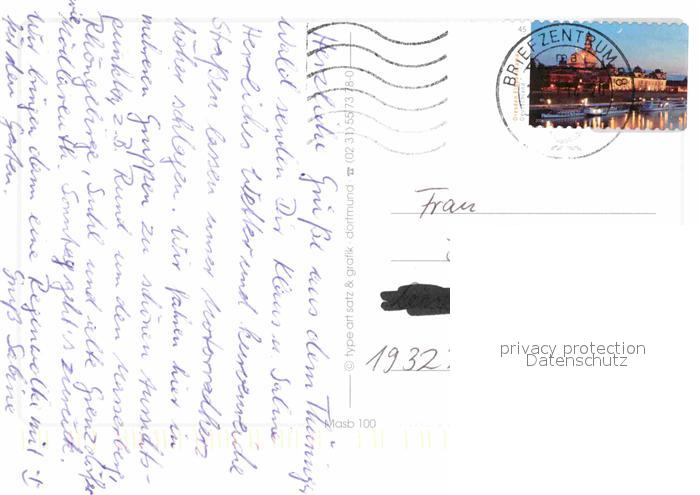 Herzliche Grüße aus dem Thüringer
Wald senden Dir Klaus u. Sabine
Herrliches Wetter und kurvenreiche
Straßen lassen unser Motorradherz
höher schlagen. Wir fahren hier in
mehreren Gruppen zu schönen Aussichts-
punkten z.B. Rund um den Masserberg,
Rhöngebirge, Suhl und alte Grenzdörfer
wie Mödlareuth. Sonntag geht's zurück.
Wir bringen dann eine Regenwolke mit :-)
für den Garten.
Gruß Sabine
© type art satz & grafik · dortmund ☎ (02 31) 55 73 78-0
Masb 100
45
BRIEFZENTRUM
Frau
1932
privacy protection
Datenschutz